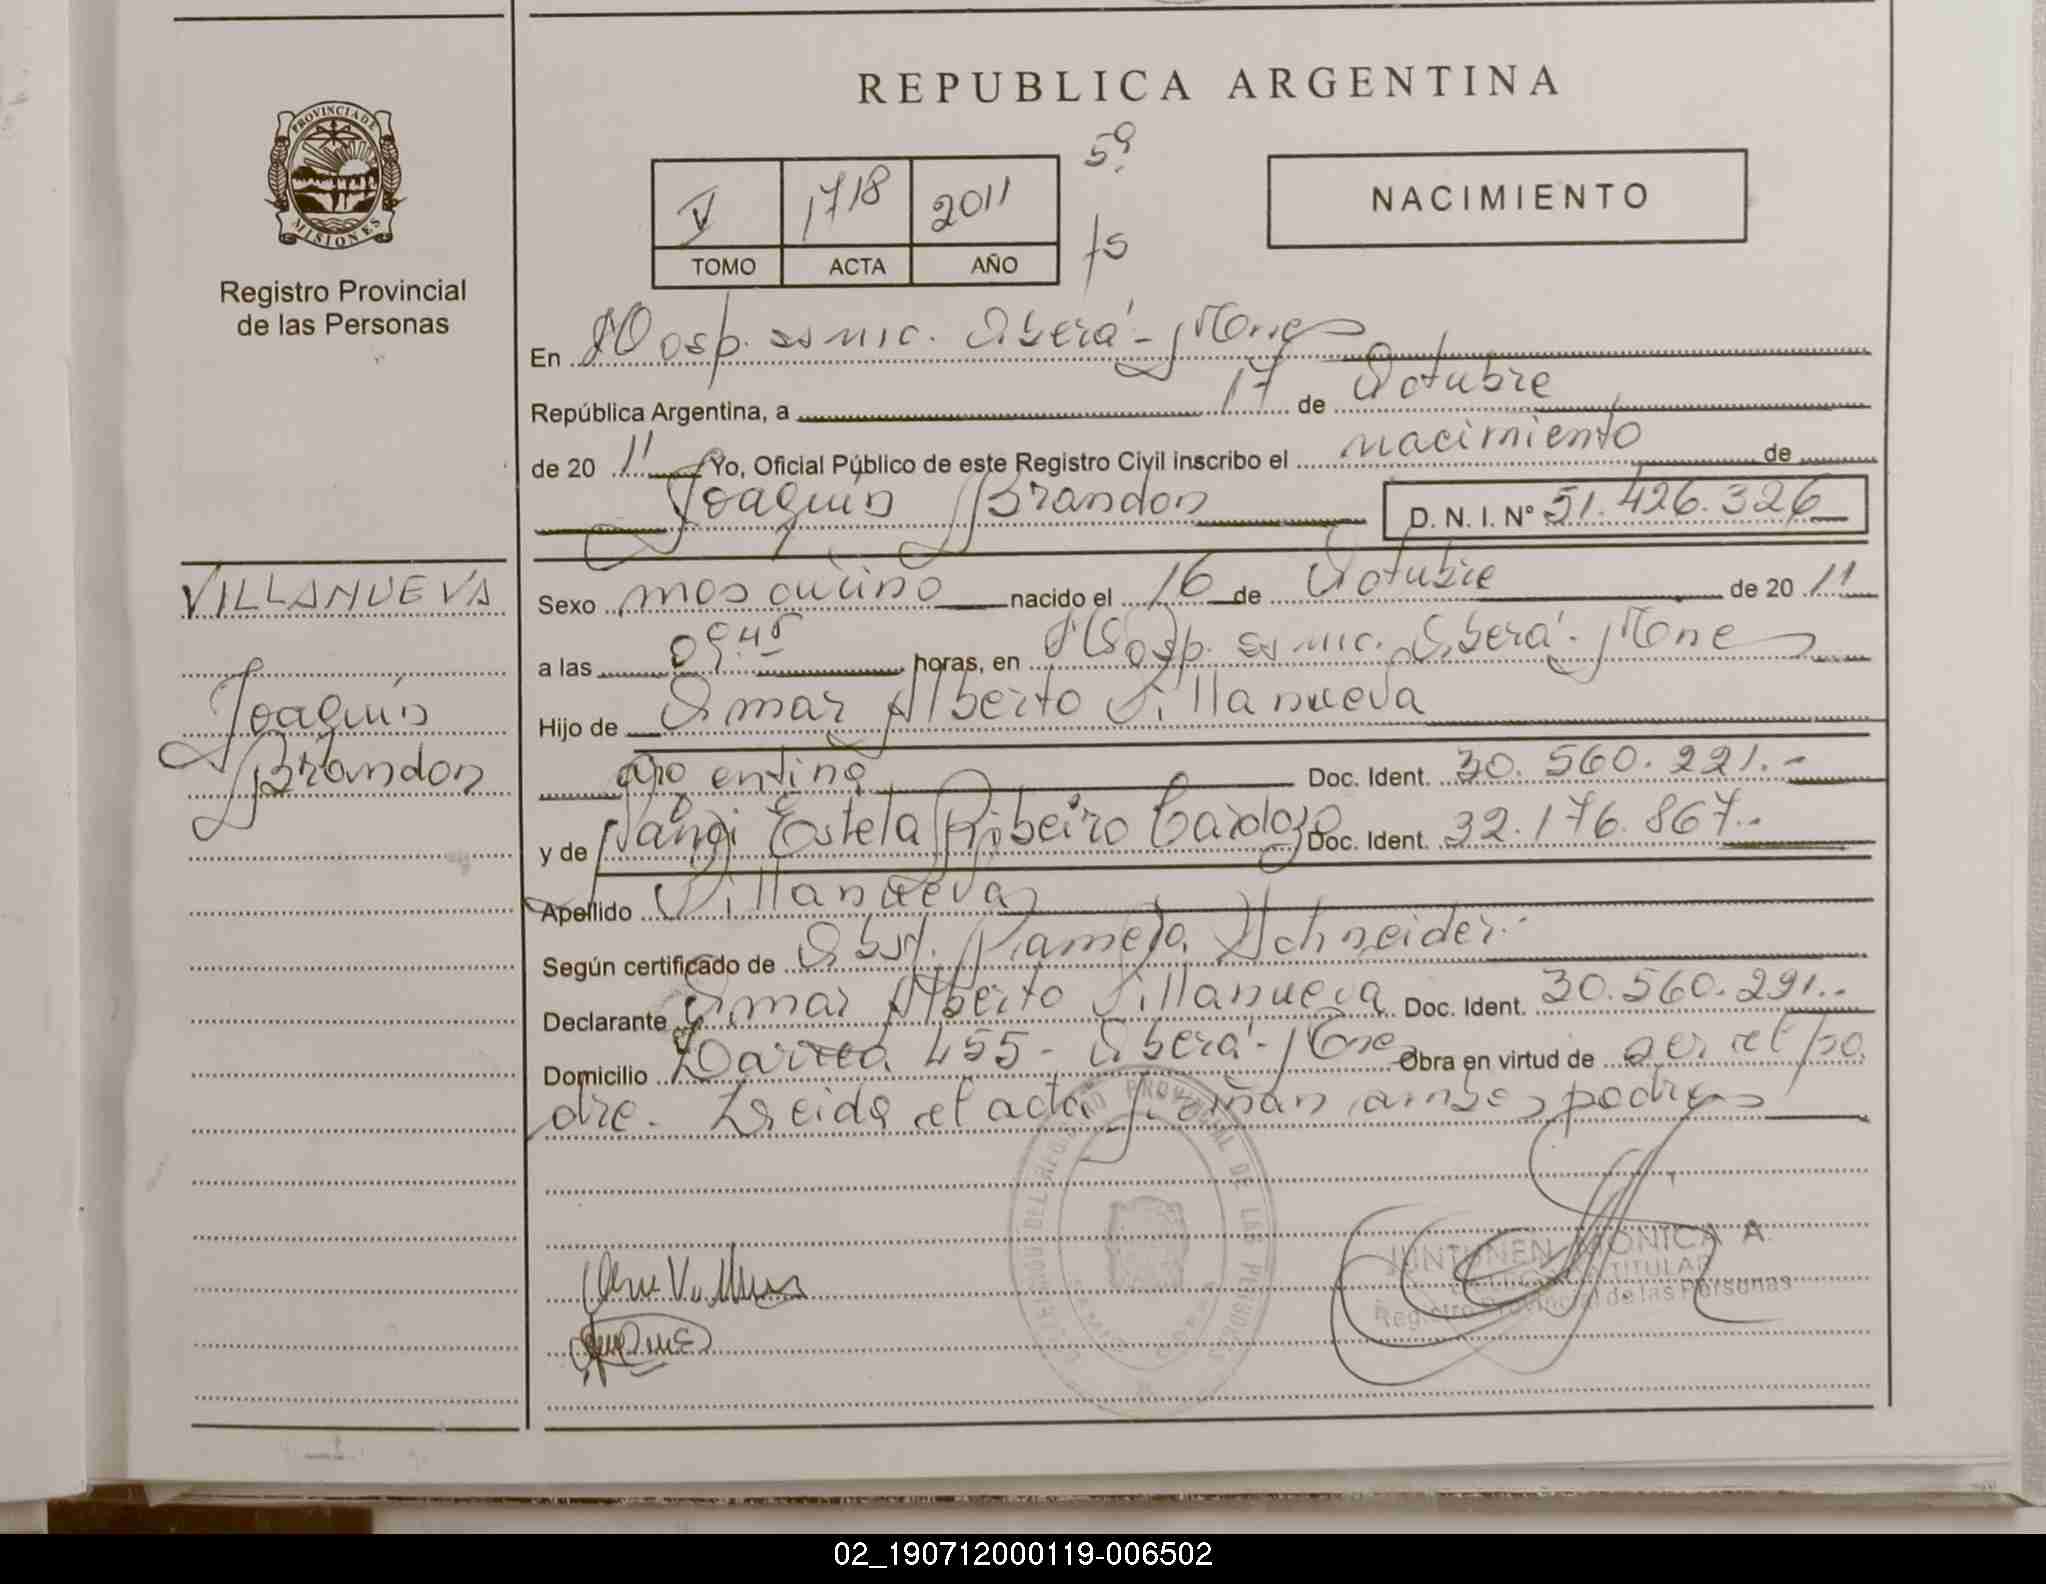 REPUBLICA ARGENTINA
PROVINCIA DE
MISIONES
Registro Provincial
de las Personas
V 1718 2011 5º
TOMO ACTA AÑO
NACIMIENTO
En Hosp. Oberá - Mones
República Argentina, a 17 de Octubre
de 20 11 Yo, Oficial Público de este Registro Civil inscribo el nacimiento de
Joaquín Brandon D. N. I. Nº 51.426.326
VILLANUEVA
Joaquín
Brandon
Sexo masculino nacido el 16 de Octubre de 20 11
a las 09:45 horas, en Hosp. Oberá - Mones
Hijo de Omar Alberto Villanueva
argentino Doc. Ident. 30.560.221.-
y de Estela Ribeiro Cardozo Doc. Ident. 32.176.867.-
Apellido Villanueva
Según certificado de Obst. Pamela Schneider.-
Declarante Omar Alberto Villanueva Doc. Ident. 30.560.291.-
Domicilio 455 - Oberá - Mones Obra en virtud de ser el pa
dre. Leida el acta firman ambos padres
JUNTUNEN MONICA A
TITULAR
Registro Provincial de las Personas
02_190712000119-006502